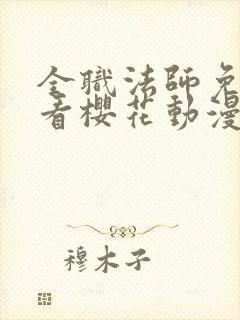 全職法師免
看櫻花動漫
穆木子